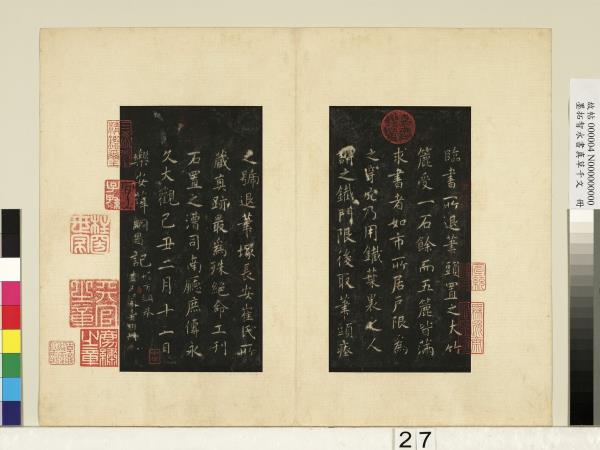 臨書所退筆頭置之大竹
簏受一石餘而五簏皆滿
求書者如市所居戶限為
之穿穴乃用鐵葉裹之人
謂之鐵門限後取筆頭瘞
之號退筆塚長安崔氏所
藏真跡最為殊絕命工刊
石置之漕司南廳庶傳永
久大觀己丑二月十一日
樂安薛嗣昌記
故帖 000004 N000000000
墨拓智永書真草千文 冊
27